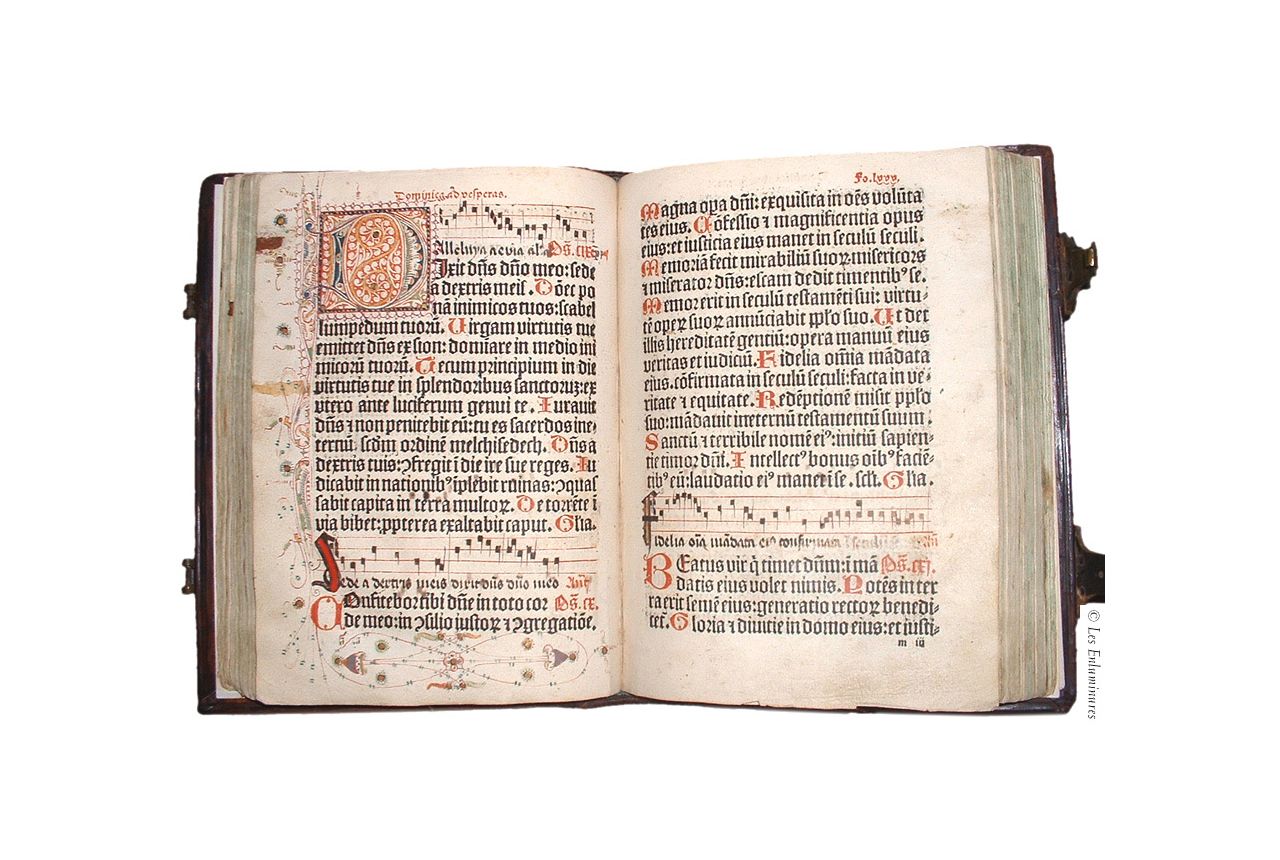 Dominica ad vesperas.
Alleluya aevia al. Ps. cix.
Dixit dñs dño meo: sede
a dextris meis. Dõec po
nã inimicos tuos: scabel
lum pedum tuorũ. Uirgam virtutis tue
emittet dñs ex sion: domiare in medio ini
micorũ tuorũ. Tecum principium in die
virtutis tue in splendoribus sanctorꝝ: ex
vtero ante luciferum genui te. Iurauit
dñs ⁊ non penitebit eũ: tu es sacerdos ine-
ternũ: scdm ordinẽ melchisedech. Dñs a
dextris tuis: ꝯfregit ĩ die ire sue reges. Iu
dicabit in nationibꝰ ĩplebit ruinas: ꝯquas
sabit capita in terra multoꝝ. De torrẽte ĩ
via bibet: ꝓpterea exaltabit caput. Glia.
Sede a dextris meis dixit dñs dño meo Añ.
Cõnfitebor tibi dñe in toto cor Ps. cx.
de meo: in ꝯsilio iustoꝝ ⁊ ꝯgregatiõe.
Fo. lxxx.
Magna opa dñi: exquisita in oẽs volũta
tes eius. Cõfessio ⁊ magnificentia opus
eius: et iusticia eius manet in seculũ seculi.
Memoriã fecit mirabiliũ suoꝝ misericors
⁊ miserator dñs: escam dedit timentibꝰ se.
Memor erit in seculũ testamẽti sui: virtu-
tẽ operꝝ suoꝝ annũciabit pplo suo. Ut det
illis hereditatẽ gentiũ: opera manuũ eius
veritas et iudiciũ. Fidelia omnia mãdata
eius. cõfirmata in seculũ seculi: facta in ve-
ritate ⁊ equitate. Redẽptionem misit pplo
suo: mãdauit in eternũ testamentũ suum.
Sanctũ ⁊ terribile nomẽ eiꝰ: initiũ sapien-
tie timor dñi. Intellectꝰ bonus oĩbꝰ faciẽ-
tibꝰ eũ: laudatio eiꝰ manet ĩ se. scli. Glia.
Fidelia oĩa mãdata eiꝰ confirmata Añ.
Beatus vir q̃ timet dñm: ĩ mã Ps. cxj.
datis eius volet nimis. Potẽs in ter
ra erit semẽ eius: generatio rectoꝝ benedi-
cet. Gloria ⁊ diuitie in domo eius: et iusti-
m iij
© Les Enluminures